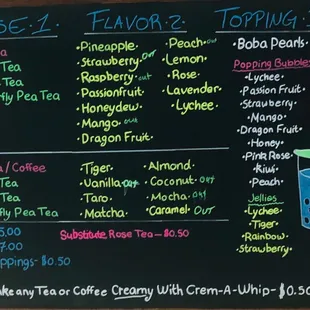 SE.1.
FLAVOR.2.
TOPPING.
a
Tea
Tea
fly Pea Tea
•Pineapple•
•Strawberry• out
•Raspberry• out
•Passionfruit•
•Honeydew•
•Mango• out
•Dragon Fruit•
•Peach• out
•Lemon•
•Rose•
•Lavender•
•Lychee•
a / Coffee
Tea
Tea
fly Pea Tea
•Tiger•
•Vanilla• out
•Taro•
•Matcha•
•Almond•
•Coconut• out
•Mocha• out
•Caramel• OUT
5.00
7.00
ppings- $0.50
Substitute Rose Tea- $0.50
•Boba Pearls•
Popping Bubbles
•Lychee•
•Passion Fruit•
•Strawberry•
•Mango•
•Dragon Fruit•
•Honey•
•Pink Rose•
•Kiwi•
•Peach•
Jellies
•Lychee•
•Tiger•
•Rainbow•
•Strawberry•
ake any Tea or Coffee Creamy With Crem-A-Whip- $0.50